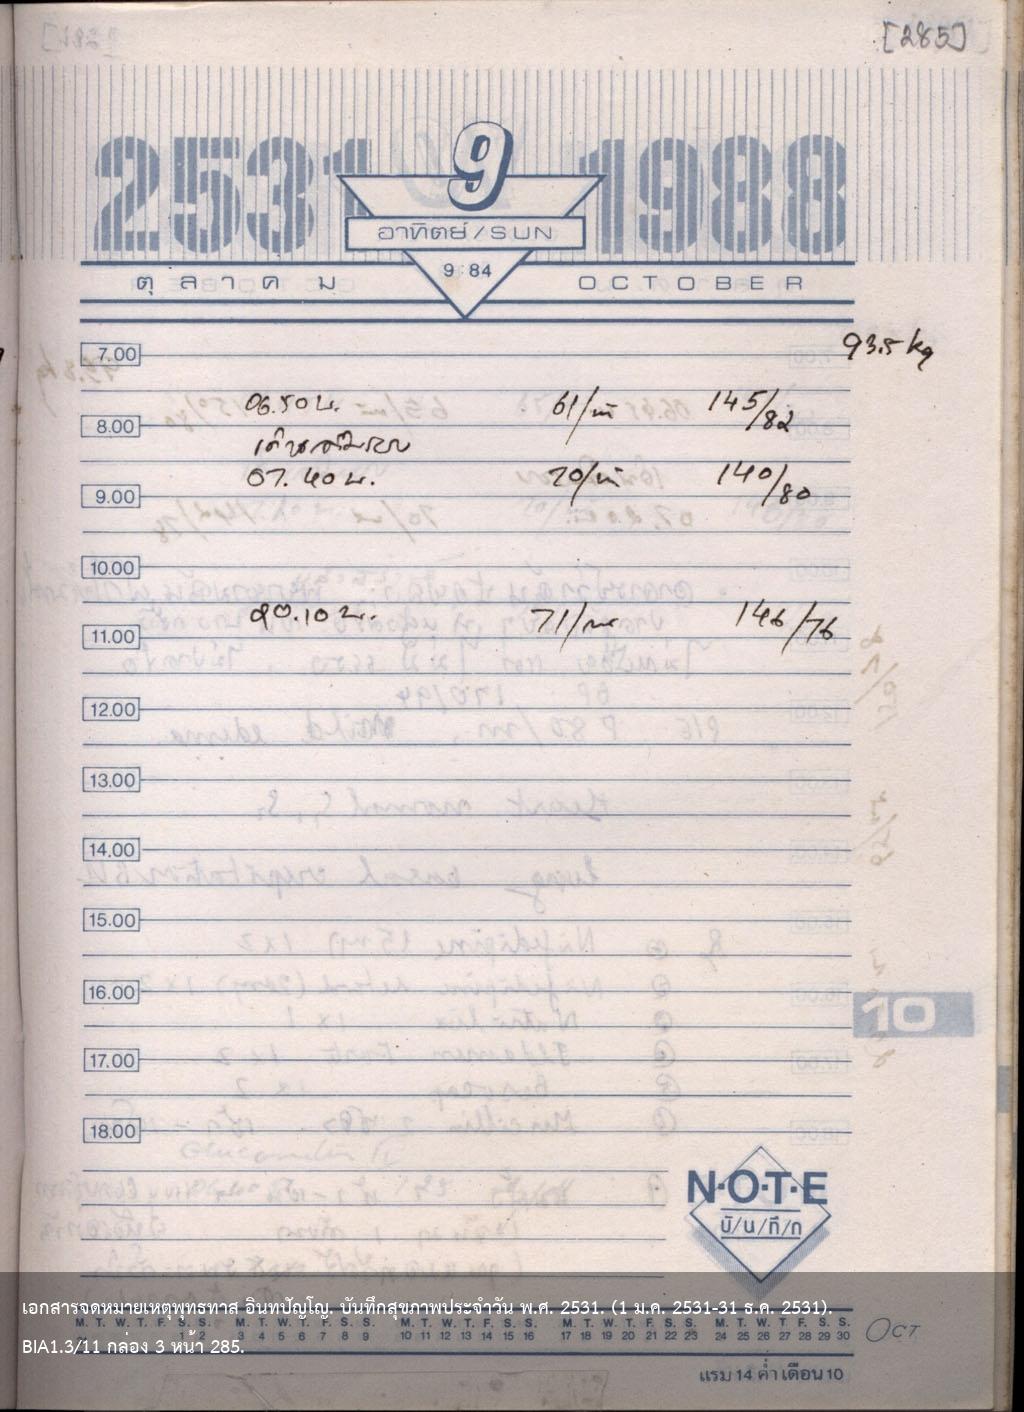 [285]
2531 9 1988
อาทิตย์/SUN
9:84
ตุลาคม OCTOBER
93.5 kg
7.00
06.50 น. 61/ 145/82
8.00
07.40 น. 70/ 140/80
9.00
10.00
20.10 น. 71/ 146/76
11.00
12.00
13.00
14.00
15.00
16.00
10
17.00
18.00
N·O·T·E
บั/น/ทึ/ก
เอกสารจดหมายเหตุพุทธทาส อินทปัญโญ. บันทึกสุขภาพประจำวัน พ.ศ. 2531. (1 ม.ค. 2531-31 ธ.ค. 2531).
M. T. W. T. F. S. S. M. T. W. T. F. S. S. M. T. W. T. F. S. S. M. T. W. T. F. S. S. M. T. W. T. F. S. S.
1 2 3 4 5 6 7 8 9 10 11 12 13 14 15 16 17 18 19 20 21 22 23 24 25 26 27 28 29 30 OCT
BIA1.3/11 กล่อง 3 หน้า 285.
แรม 14 ค่ำ เดือน 10